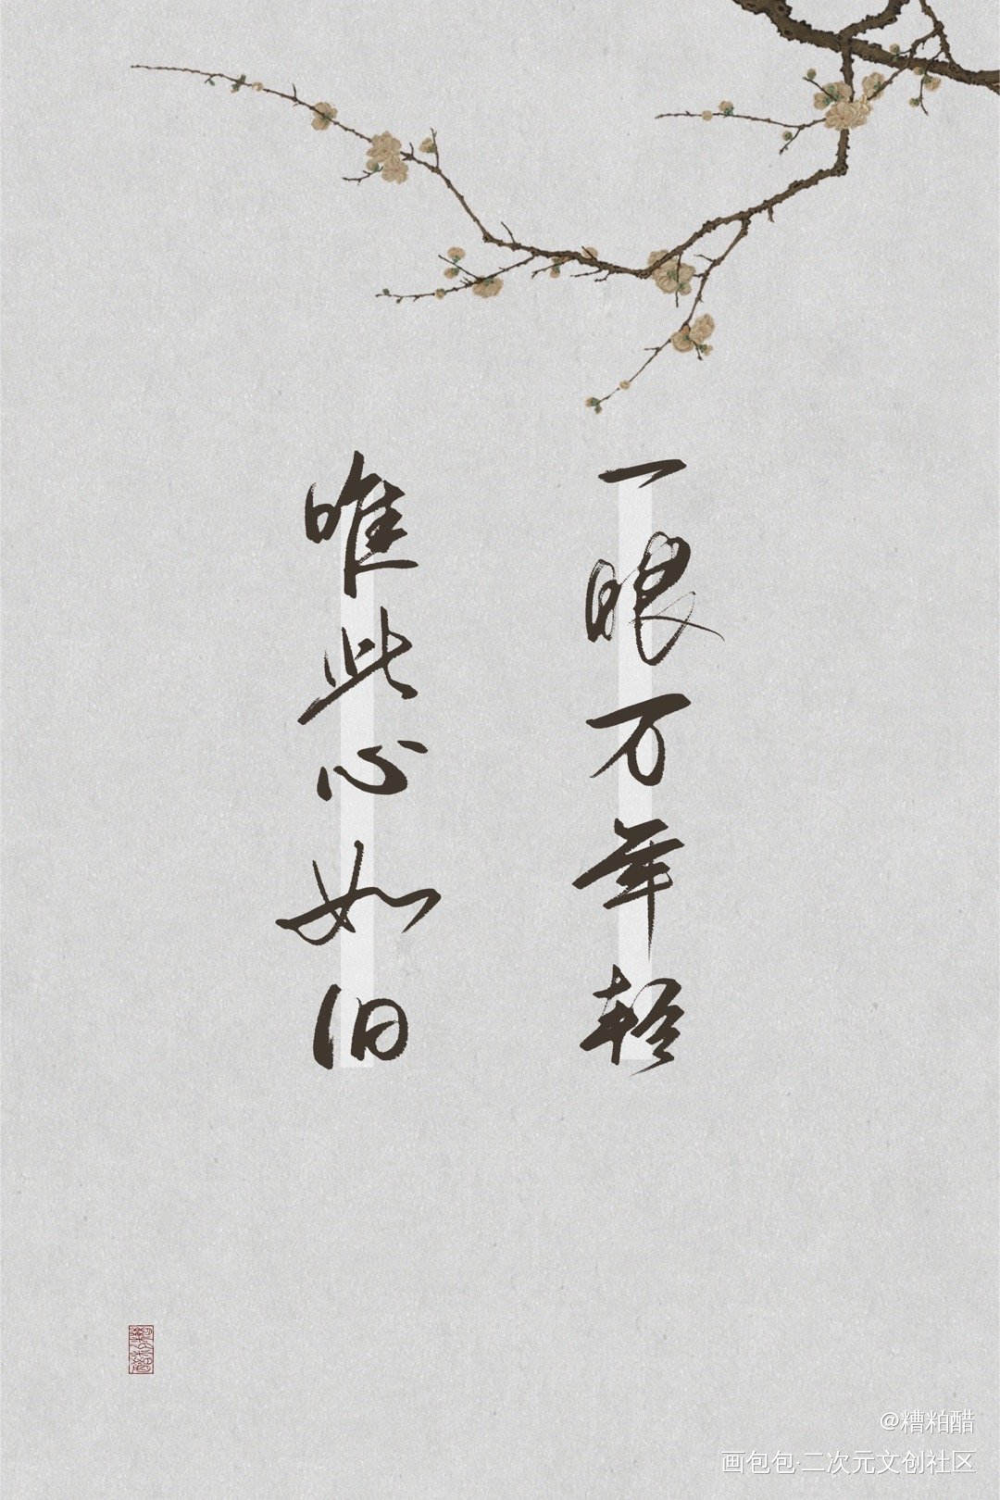 一眼万年轻
唯此心如旧
@糟粕醋
画包包·二次元文创社区